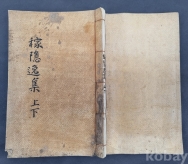 稼隐逸集
上下
kobay